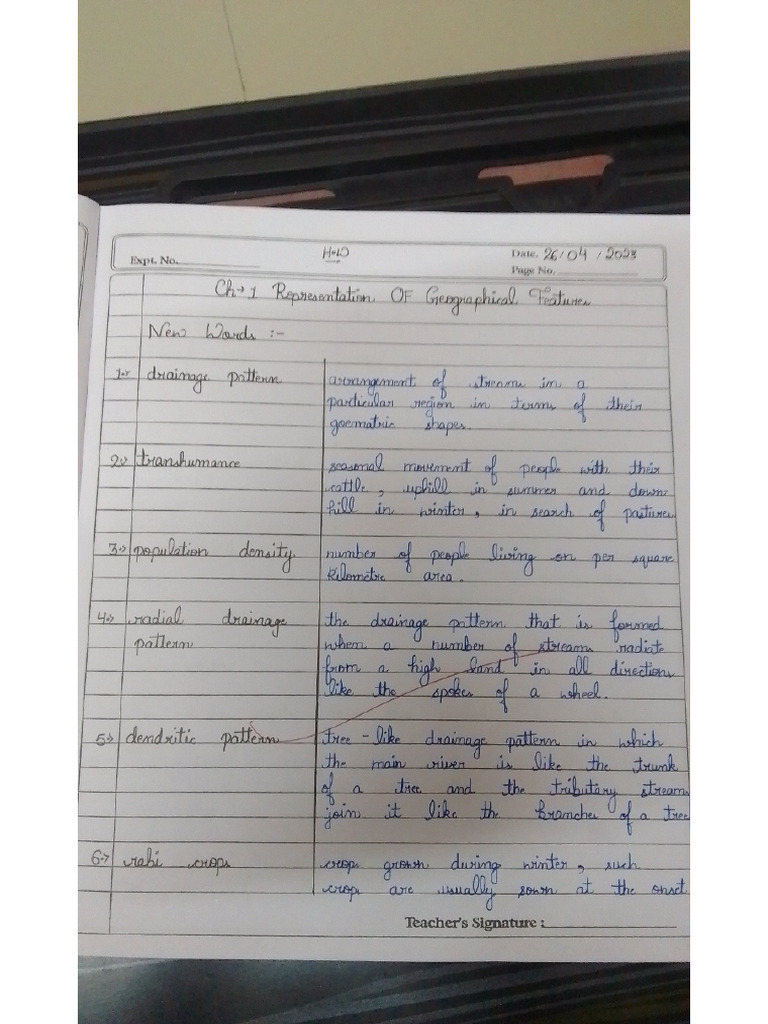 Expt. No. H.W Date. 26/04/2023
Page No.
Ch→1 Representation OF Geographical Features
New Words :-
1→ drainage pattern arrangement of streams in a
particular region in terms of their
goematric shapes.
2→ transhumance seasonal movement of people with their
cattle, uphill in summer and down
hill in winter, in search of pastures
3→ population density number of people living on per square
kilometre area.
4→ radial drainage the drainage pattern that is formed
pattern when a number of streams radiate
from a high land in all direction
like the spokes of a wheel.
5→ dendritic pattern tree-like drainage pattern in which
the main river is like the trunk
of a tree and the tributary streams
join it like the branches of a tree
6→ rabi crops crops grown during winter, such
crops are usually sown at the onset
Teacher's Signature :